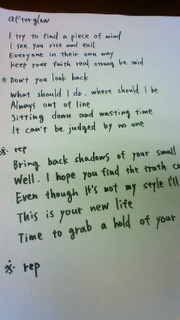 afterglow
I try to find a piece of mind
I see you rise and fall
Everyone in their own way
keep your faith real strong he said
* Don't you look back
What should I do, where should I be
Always out of line
Sitting down and wasting time
It can't be judged by no one
※ rep
Bring back shadows of your small
Well. I hope you find the truth
Even though It's not my style I'll
This is your new life
Time to grab a hold of your
※ rep